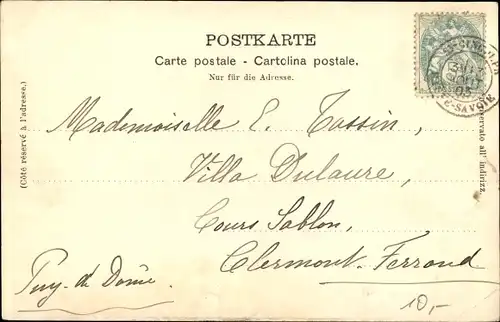 POSTKARTE
Carte postale - Cartolina postale.
Nur für die Adresse.
(Côté réservé à l'adresse.)
Mademoiselle E. Tassin,
Villa Dulaure,
Cours Sablon,
Clermont-Ferrand
Puy-de Dôme
servato all' indirizz
E-SAVOIE
10,-